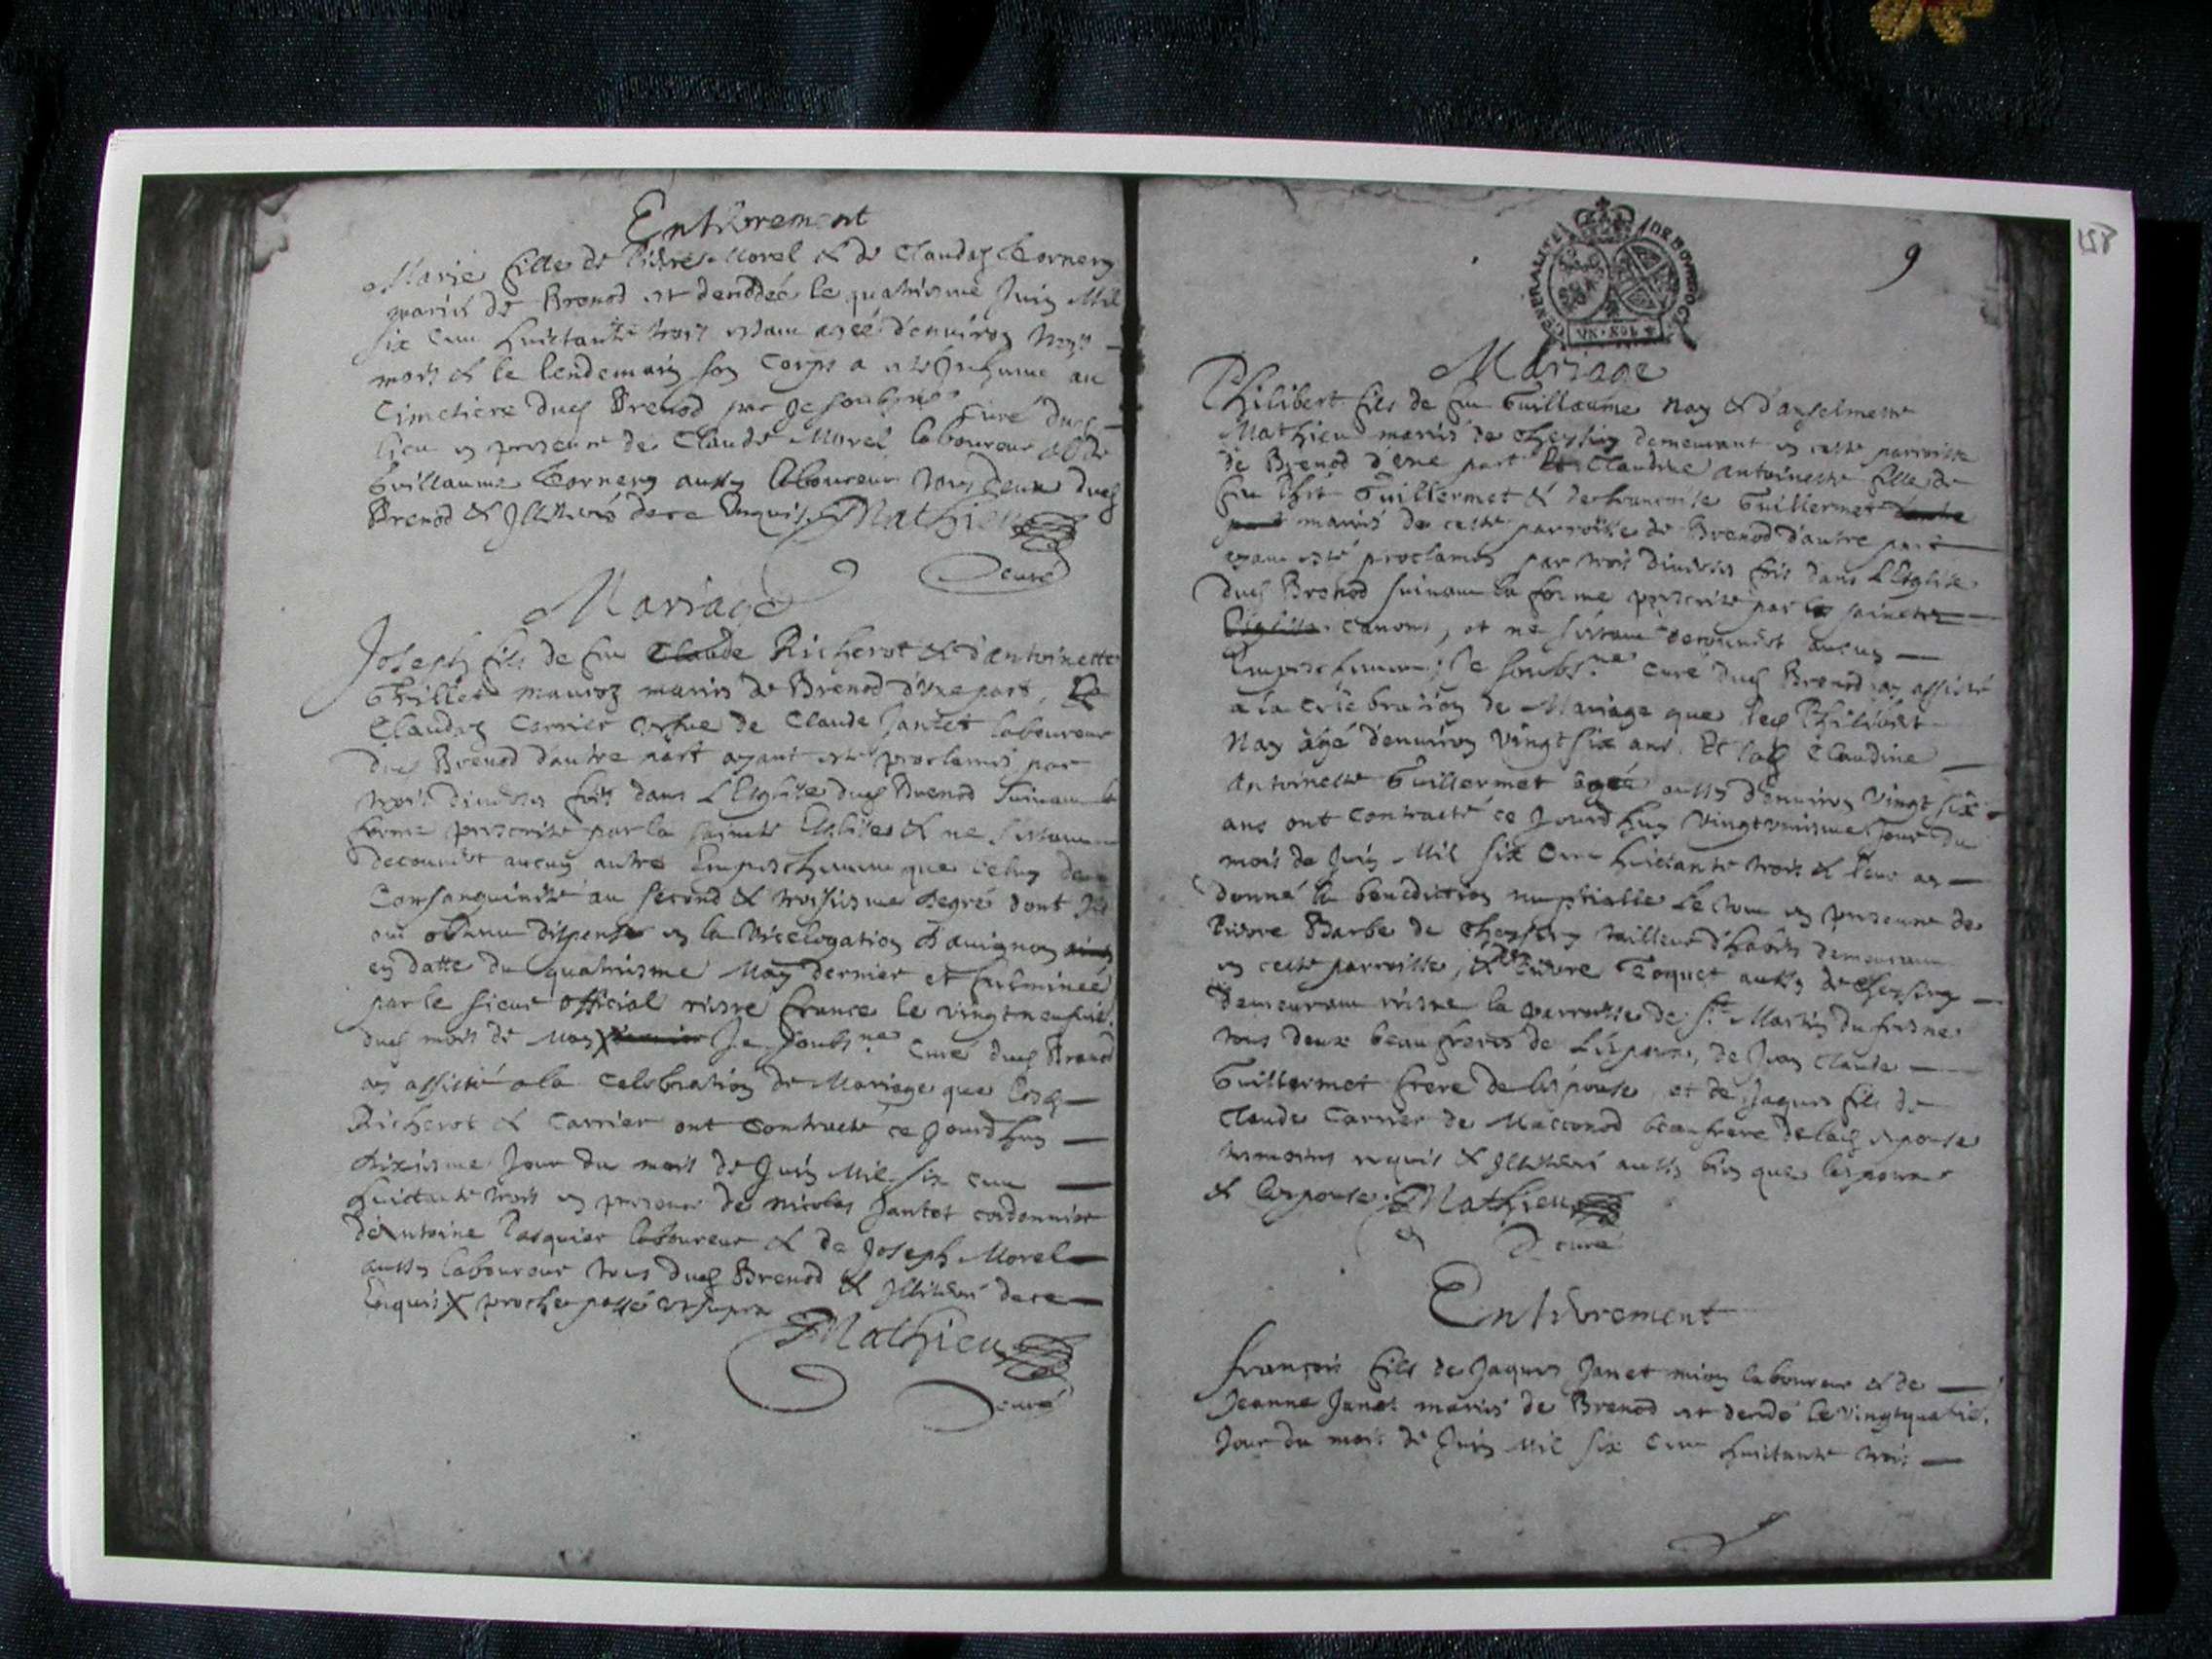 Enterrement
Marie fille de Pierre Morel & de Claudaz Tornery
mariés de Brenod est decedée le quatriesme Juin Mil
six cent huictante trois estant agée d'environ trois
mois & le lendemain son corps a esté Inhumé au
Cimetiere dud Brenod par Je soubsné Curé dud
lieu en presence de Claude Morel laboureur & de
Guillaume Tornery aussy laboureur tous deux dud
Brenod & Illiterés de ce Enquis Mathieu
curé
Mariage
Joseph fils de feu Claude Richerot & d'antoinette
mariés de Brenod d'une part, Et
Claudaz Carrier vefve de Claude Jantet laboureur
dud Brenod d'autre part ayant esté proclamés par
trois diverses fois dans L'Esglise dud Brenod suivant la
forme prescrite par la sainte Esglise & ne s'estant
decouvert aucun autre Empeschement que celuy de
Consanguinité au second & troisiesme degré dont Ils
ont obtenu dispense en la Vicelegation d'avignon
en datte du quatriesme May dernier et fulminée
par le sieur official riere france le vingtneufvié.
dud mois de May X Je soubsné Curé dud Brenod
ay assisté a la Celebration de Mariage que lesd
Richerot & Carrier ont Contracté ce Jourd'huy
dixiesme Jour du mois de Juin Mil six cent
huictante trois en presence de nicolas Jantet cordonnier
d'Antoine Pasquier laboureur & de Joseph Morel
aussy laboureur tous dud Brenod & Illiterés de ce
Enquis X proche passé ut supra
Mathieu
curé
158
9
GENERALITE DE BOURGOGNE
UN SOL
Mariage
Philibert fils de feu Guillaume Nay & d'anselmette
Mathieu mariés de Cheysery demeurant en cette parroisse
de Brenod d'une part Et Claudine antoinette fille de
feu Guillermet & de francoise Guillermet d'autre
part mariés de cette parroisse de Brenod d'autre part
ayant esté proclamés par trois diverses fois dans L'Esglise
dud Brenod suivant la forme prescrite par les saincts
L'esglise canons, et ne s'estant decouvert aucun
Empeschement, Je soubsné curé dud Brenod ay assisté
a la Celebration de Mariage que led Philibert
Nay agé d'environ vingt six ans, Et lad Claudine
antoinette Guillermet agée aussy d'environ vingt six
ans ont contracté ce Jourd'huy vingtuniesme Jour du
mois de Juin Mil six Cent huictante trois & leur ay
donné la benediction nuptialle Le tout en presence de
Pierre Barbe de Cheysery tailleur d'habits demeurant
en cette parroisse, & de Pierre Toquet aussy de Cheysery
demeurant riesre la parroisse de St Martin du fresne
tous deux beaufreres de L'espoux, de Jean Claude
Guillermet frere de l'espouse, et de Jaques fils de
Claude Carrier de Macconod beaufrere de lad espouse
tesmoins requis & Illiterés aussy bien que l'espoux
& l'espouse. Mathieu
curé
Enterrement
françois fils de Jaques Janet mion laboureur & de
Jeanne Janet mariés de Brenod est decedé le vingtquatrié.
Jour du mois de Juin Mil six Cent huictante trois